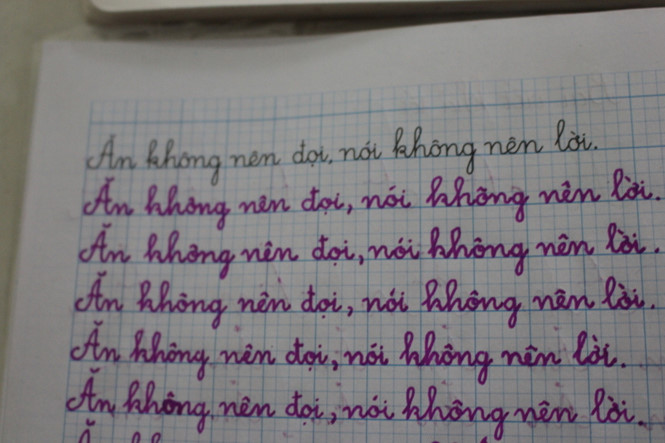 Ăn không nên đọi, nói không nên lời.
Ăn không nên đọi, nói không nên lời.
Ăn không nên đọi, nói không nên lời.
Ăn không nên đọi, nói không nên lời.
Ăn không nên đọi, nói không nên lời.
Ăn không nên đọi, nói không nên lời.